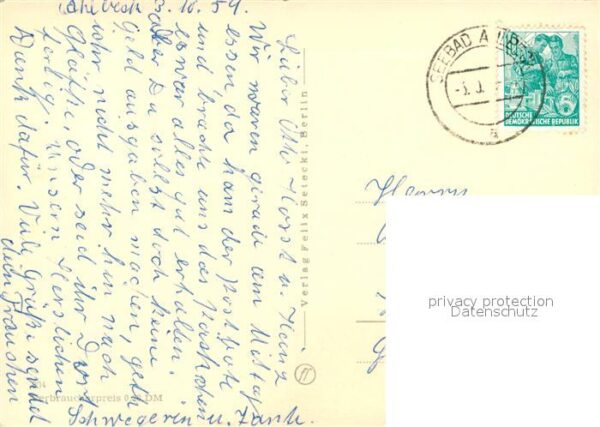 Ahlbeck 3.10.59.
Lieber Otto, Horst u. Heinz
Wir waren gerade am Mittag
essen da kam der Postbote
und brachte uns das Päckchen
es war alles gut erhalten.
Aber Du sollst doch keine
Geld ausgaben machen, geht
ihr nicht mehr hin nach
oder seid ihr dort
fertig. Unsern Herzlichen
Dank dafür. Viele Grüße sendet
dein Frauchen
Schwägerin u. Tante.
Verlag Felix Setecki, Berlin
Verbraucherpreis DM
SEEBAD AHLBECK
DEUTSCHE
DEMOKRATISCHE REPUBLIK
6
Herrn
privacy protection
Datenschutz